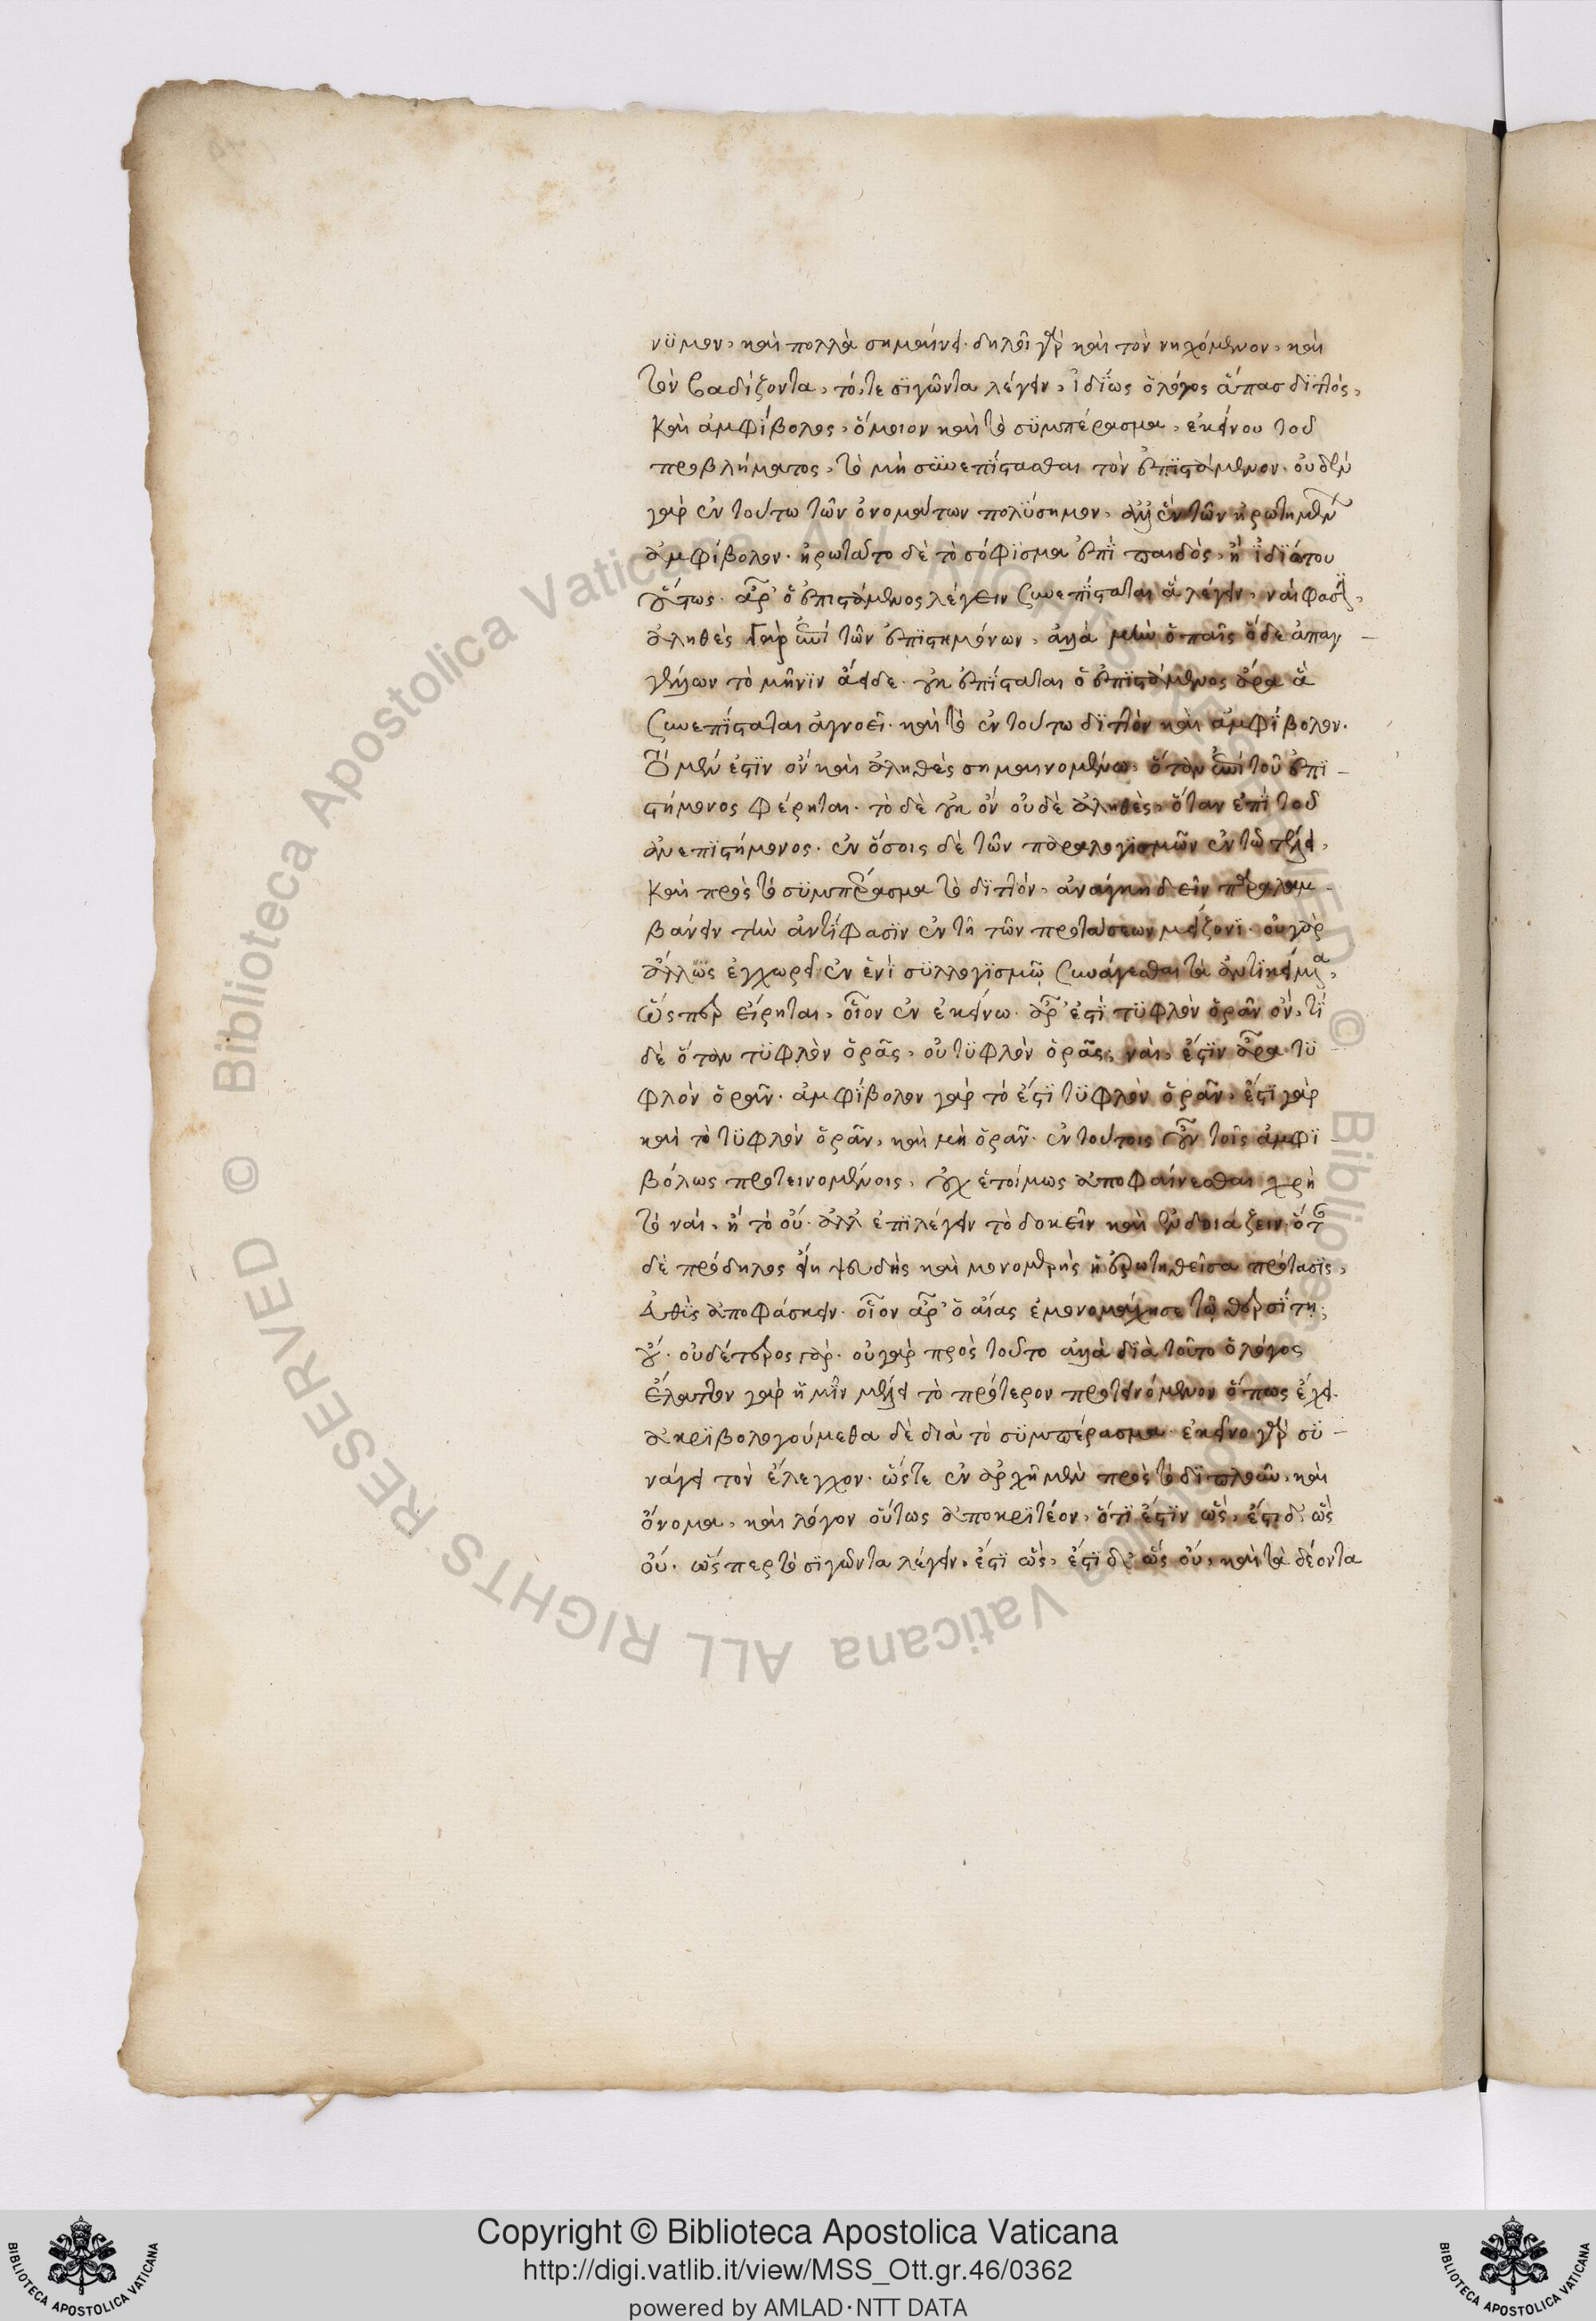 νϋμον, καὶ πολλὰ σημαίνει. δηλοῖ γὰρ καὶ τὸν νηχόμενον, καὶ
τὸν βαδίζοντα, τό, τε σϊγῶντα λέγειν, ἰδΐως ὁ λόγος ἅπας διπλός,
καὶ ἀμφίβολος, ὅμοιον καὶ τὸ σϋμπέρασμα, ἐκείνου τοῦ
προβλήματος, τὸ μὴ συνεπίστασθαι τὸν ἐπϊστάμενον. οὐδὲν
γὰρ ἐν τούτω τῶν ὀνομάτων πολϋσημον, ἀλλ' ἐν τῶν ἠρωτημένων
ἀμφίβολον. ἠρωτᾶτο δὲ τὸ σόφϊσμα ἐπὶ παιδὸς, ἢ ἰδϊώτου
οὕτως. ἆρ' ὁ ἐπιστάμενος λέγειν συνεπίσταται ἃ λέγειν, ναί φασϊ,
ἀληθὲς γὰρ ἐπὶ τῶν ἐπϊστημόνων, ἀλλὰ μὴν ὁ παῖς ὅδε ἀπαγ
γέλλων τὸ μῆνϊν ἄειδε. οὐκ ἐπίσταται ὁ ἐπϊστάμενος ἄρα ἃ
συνεπίσταται ἀγνοεῖ. καὶ τὸ ἐν τούτω διπλὸν καὶ ἀμφίβολον.
Ὃ μὲν ἐστϊν ὂν καὶ ἀληθὲς σημαινομένω, ὅταν ἐπὶ τοῦ ἐπϊ
στήμονος φέρηται. τὸ δὲ οὐκ ὂν οὐδὲ ἀληθὲς, ὅταν ἐπὶ τοῦ
ἀνεπϊστήμονος. ἐν ὅσοις δὲ τῶν παραλογϊσμῶν ἐν τῶ τέλει,
καὶ πρὸς τὸ σϋμπέρασμα τὸ διπλόν, ἀνάγκη δεῖν παραλαμ
βάνειν τὴν ἀντίφασϊν ἐν τῆ τῶν προτάσεων μείζονϊ. οὐ γὰρ
ἄλλως ἐγχωρεῖ ἐν ἑνὶ σϋλλογϊσμῷ συνάγεσθαι τὰ ἀντϊκείμενα,
ὥσπερ εἴρηται, οἷον ἐν ἐκείνω. ἆρ' ἐστϊ τϋφλὸν ὁρᾶν ὄν, τί
δὲ ὅταν τϋφλὸν ὁρᾶς, οὐ τϋφλὸν ὁρᾶς, ναί, ἔστϊν ἄρα τϋ
φλὸν ὁρᾶν. ἀμφίβολον γὰρ τὸ ἐστϊ τϋφλὸν ὁρᾶν, ἐστϊ γὰρ
καὶ τὸ τϋφλὸν ὁρᾶν, καὶ μὴ ὁρᾶν. ἐν τούτοις οὖν τοῖς ἀμφϊ
βόλως προτεινομένοις, οὐχ ἑτοίμως ἀποφαίνεσθαι χρὴ
τὸ ναί, ἢ τὸ οὔ. ἀλλ' ἐπϊλέγειν τὸ δοκεῖν καὶ ἐνδοιάζειν. ὅταν
δὲ πρόδηλος εἴη ψευδὴς καὶ μονομερὴς ἡ ἐρωτηθεῖσα πρότασις,
εὐθὺς ἀποφάσκειν. οἷον ἆρ' ὁ αἴας ἐμονομάχησε τῶ θερσίτη;
οὔ. οὐδέτερος γὰρ. οὐ γὰρ πρὸς τοῦτο ἀλλὰ διὰ τοῦτο ὁ λόγος
ἔλαττον γὰρ ἡμῖν μέλει τὸ πρότερον προτεινόμενον ὅπως ἔχει.
ἀκρϊβολογούμεθα δὲ διὰ τὸ σϋμπέρασμα. ἐκεῖνο γὰρ σϋ
νάγει τὸν ἔλεγχον. ὥστε ἐν ἀρχῆ μὲν πρὸς τὸ διπλοῦν, καὶ
ὄνομα, καὶ λόγον οὕτως ἀποκριτέον, ὅτϊ ἐστϊν ὡς, ἔστι δ' ὡς
οὔ. ὥσπερ τὸ σϊγῶντα λέγειν, ἐστϊ ὡς, ἐστϊ δ' ὡς οὔ, καὶ τὰ δέοντα